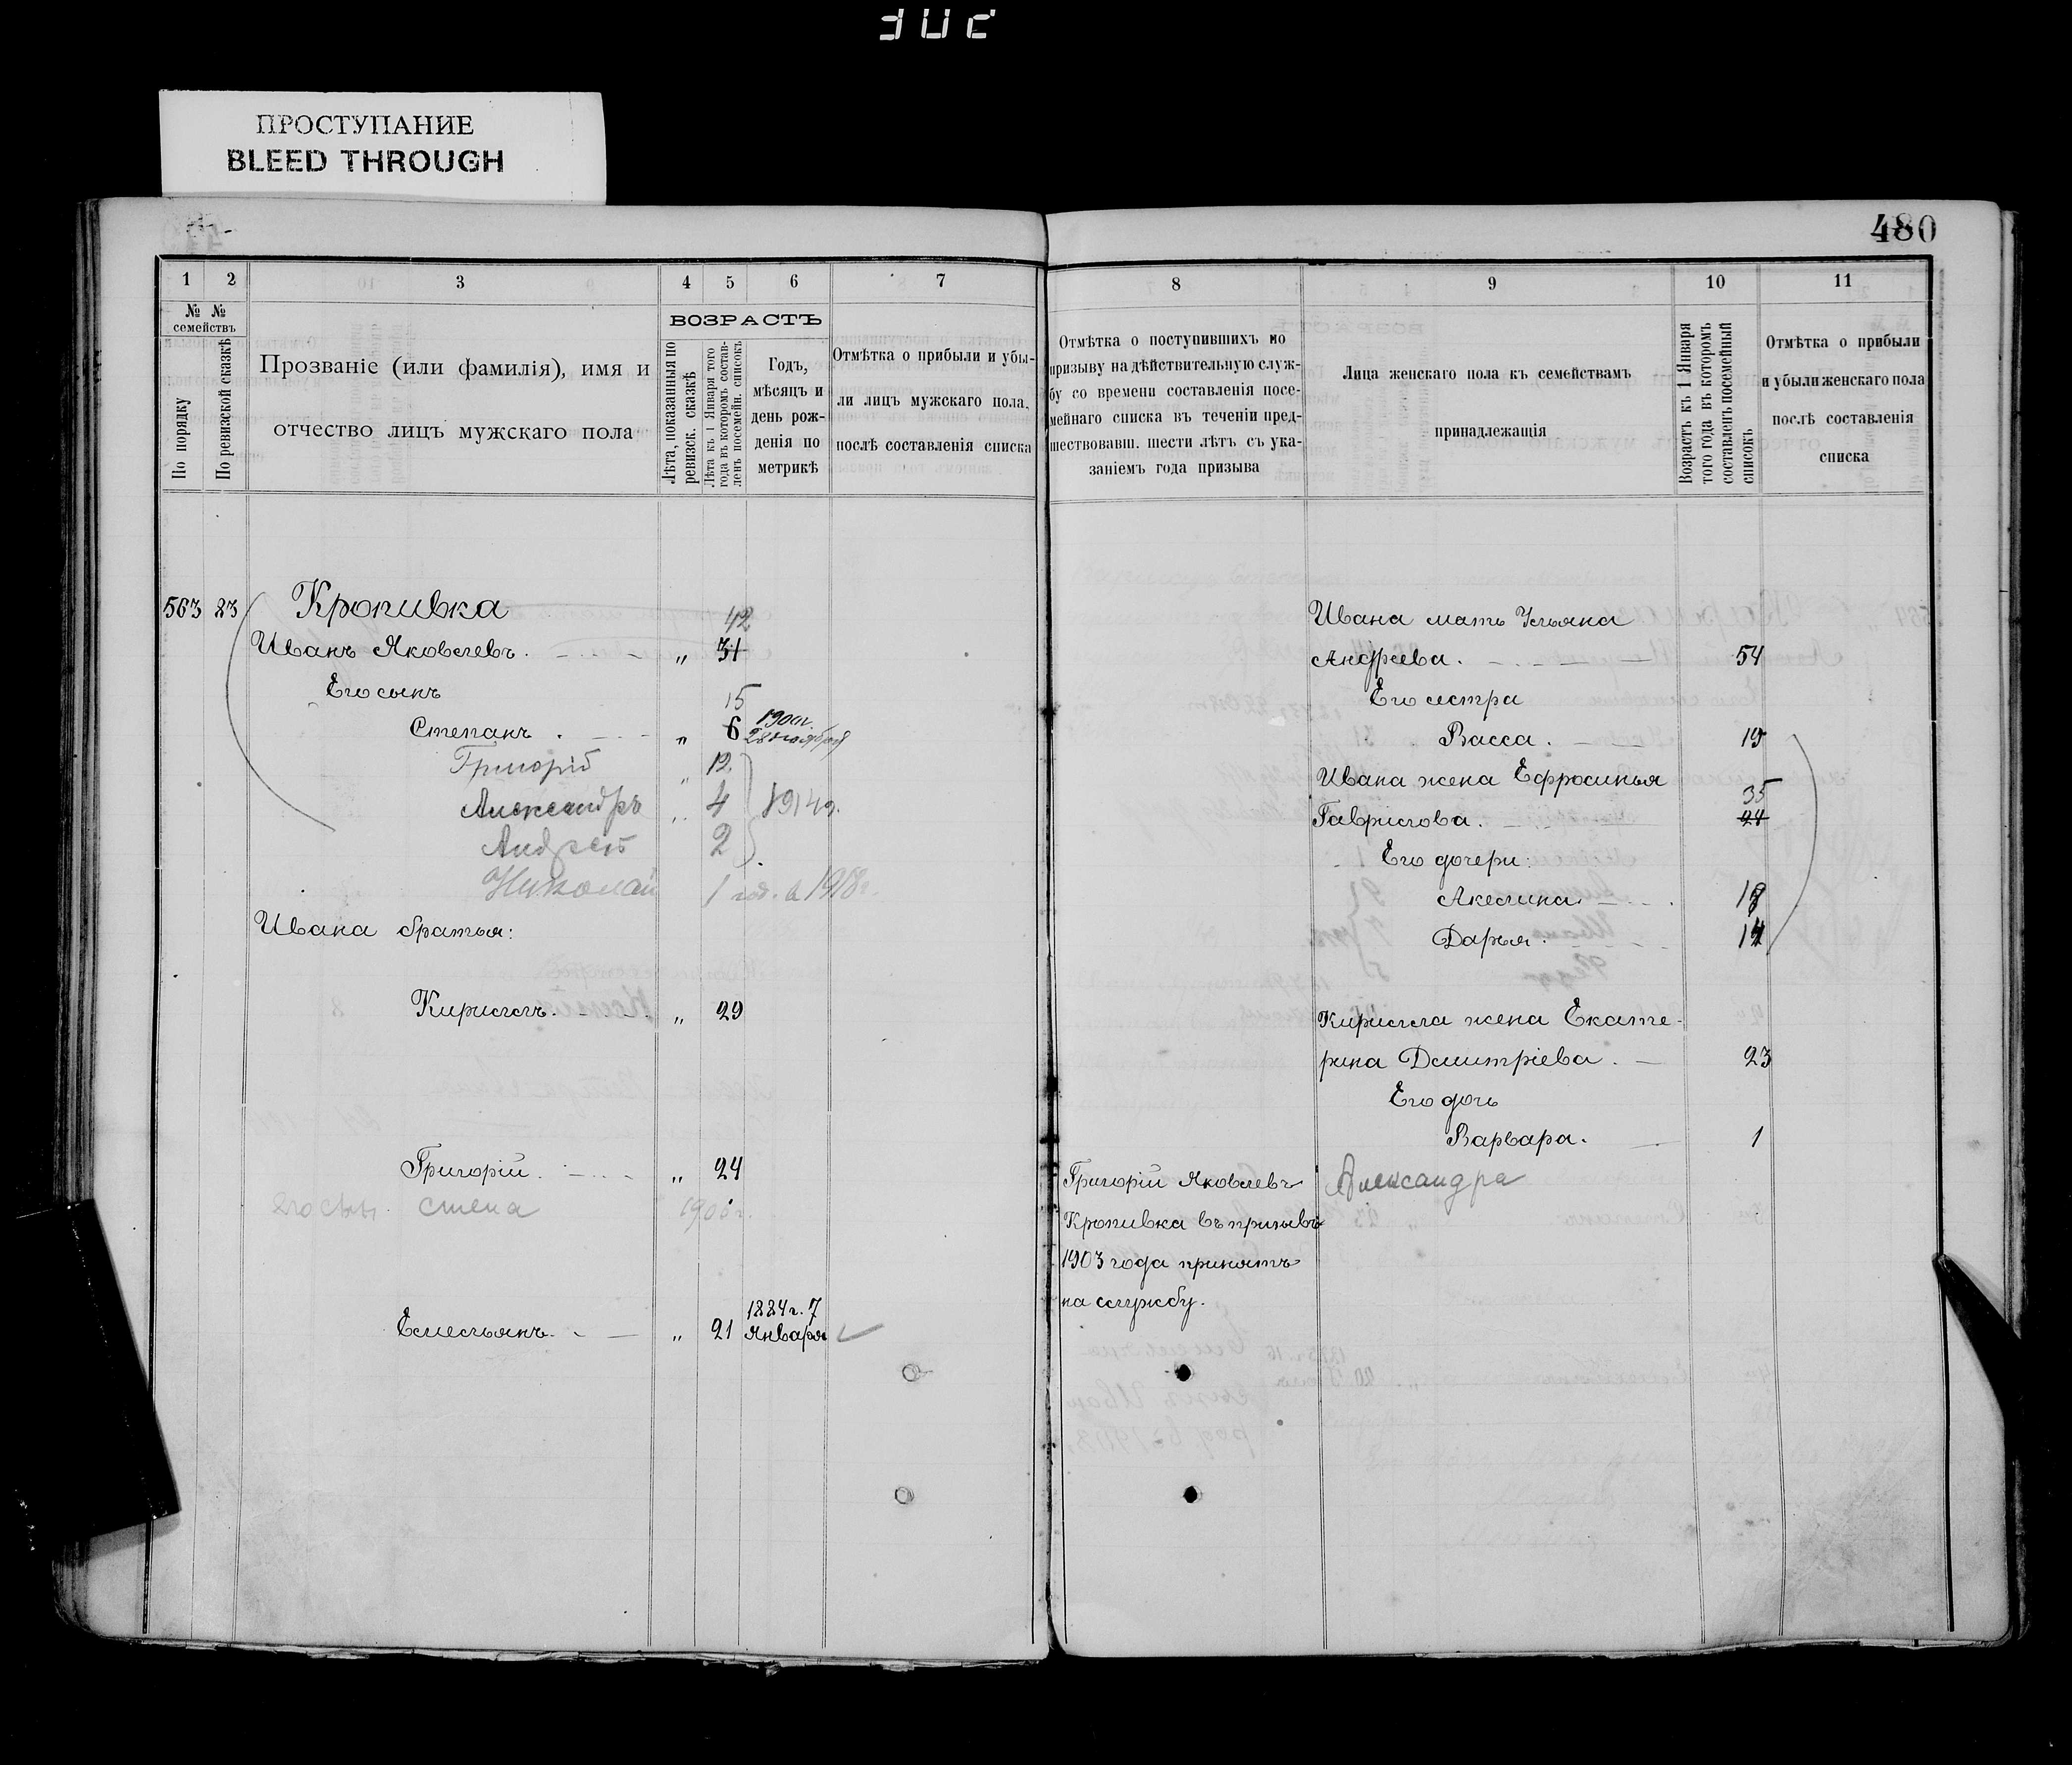 ПРОСТУПАНИЕ
BLEED THROUGH
480
1 2 3 4 5 6 7
№ № семействъ
По порядку
По ревизской сказкѣ
Прозваніе (или фамилія), имя и
отчество лицъ мужскаго пола
ВОЗРАСТЪ
Лѣта, показанныя по
ревизск. сказкѣ
Лѣта къ 1 Января того
года въ которомъ состав-
ленъ посемейн. списокъ
Годъ,
мѣсяцъ и
день рож-
денія по
метрикѣ
Отмѣтка о прибыли и убы-
ли лицъ мужскаго пола,
послѣ составленія списка
563 83 Кропивка
42
Иванъ Яковлевъ. „ 31
Его сынъ
15
Степанъ . „ 6 28 ноября
Григорій „ 12
Александръ „ 4 1914г.
Андрей 2
Николай 1 год. в 1918г.
Ивана братья:
Кириллъ. „ 29
Григорій. „ 24
его сынъ 1905г.
1884г. 7
Емельянъ. „ 21 Января
8 9 10 11
Отмѣтка о поступившихъ по
призыву на дѣйствительную служ-
бу со времени составленія посе-
мейнаго списка въ теченіи пред-
шествовавш. шести лѣтъ съ ука-
заніемъ года призыва
Лица женскаго пола къ семействамъ
принадлежащія
Возрастъ къ 1 Января
того года въ которомъ
составленъ посемейный
списокъ
Отмѣтка о прибыли
и убыли женскаго пола
послѣ составленія
списка
Ивана мать Ульяна
Андреева. 54
Его сестра
Васса. 19
Ивана жена Ефросинья
35
Гаврилова. 24
Его дочери:
Акелина.
Дарья.
Кирилла жена Екате-
рина Дмитріева. 23
Его дочь
Варвара. 1
Александра
Григорій Яковлевъ
Кропивка въ призывъ
1903 года принятъ
на службу.